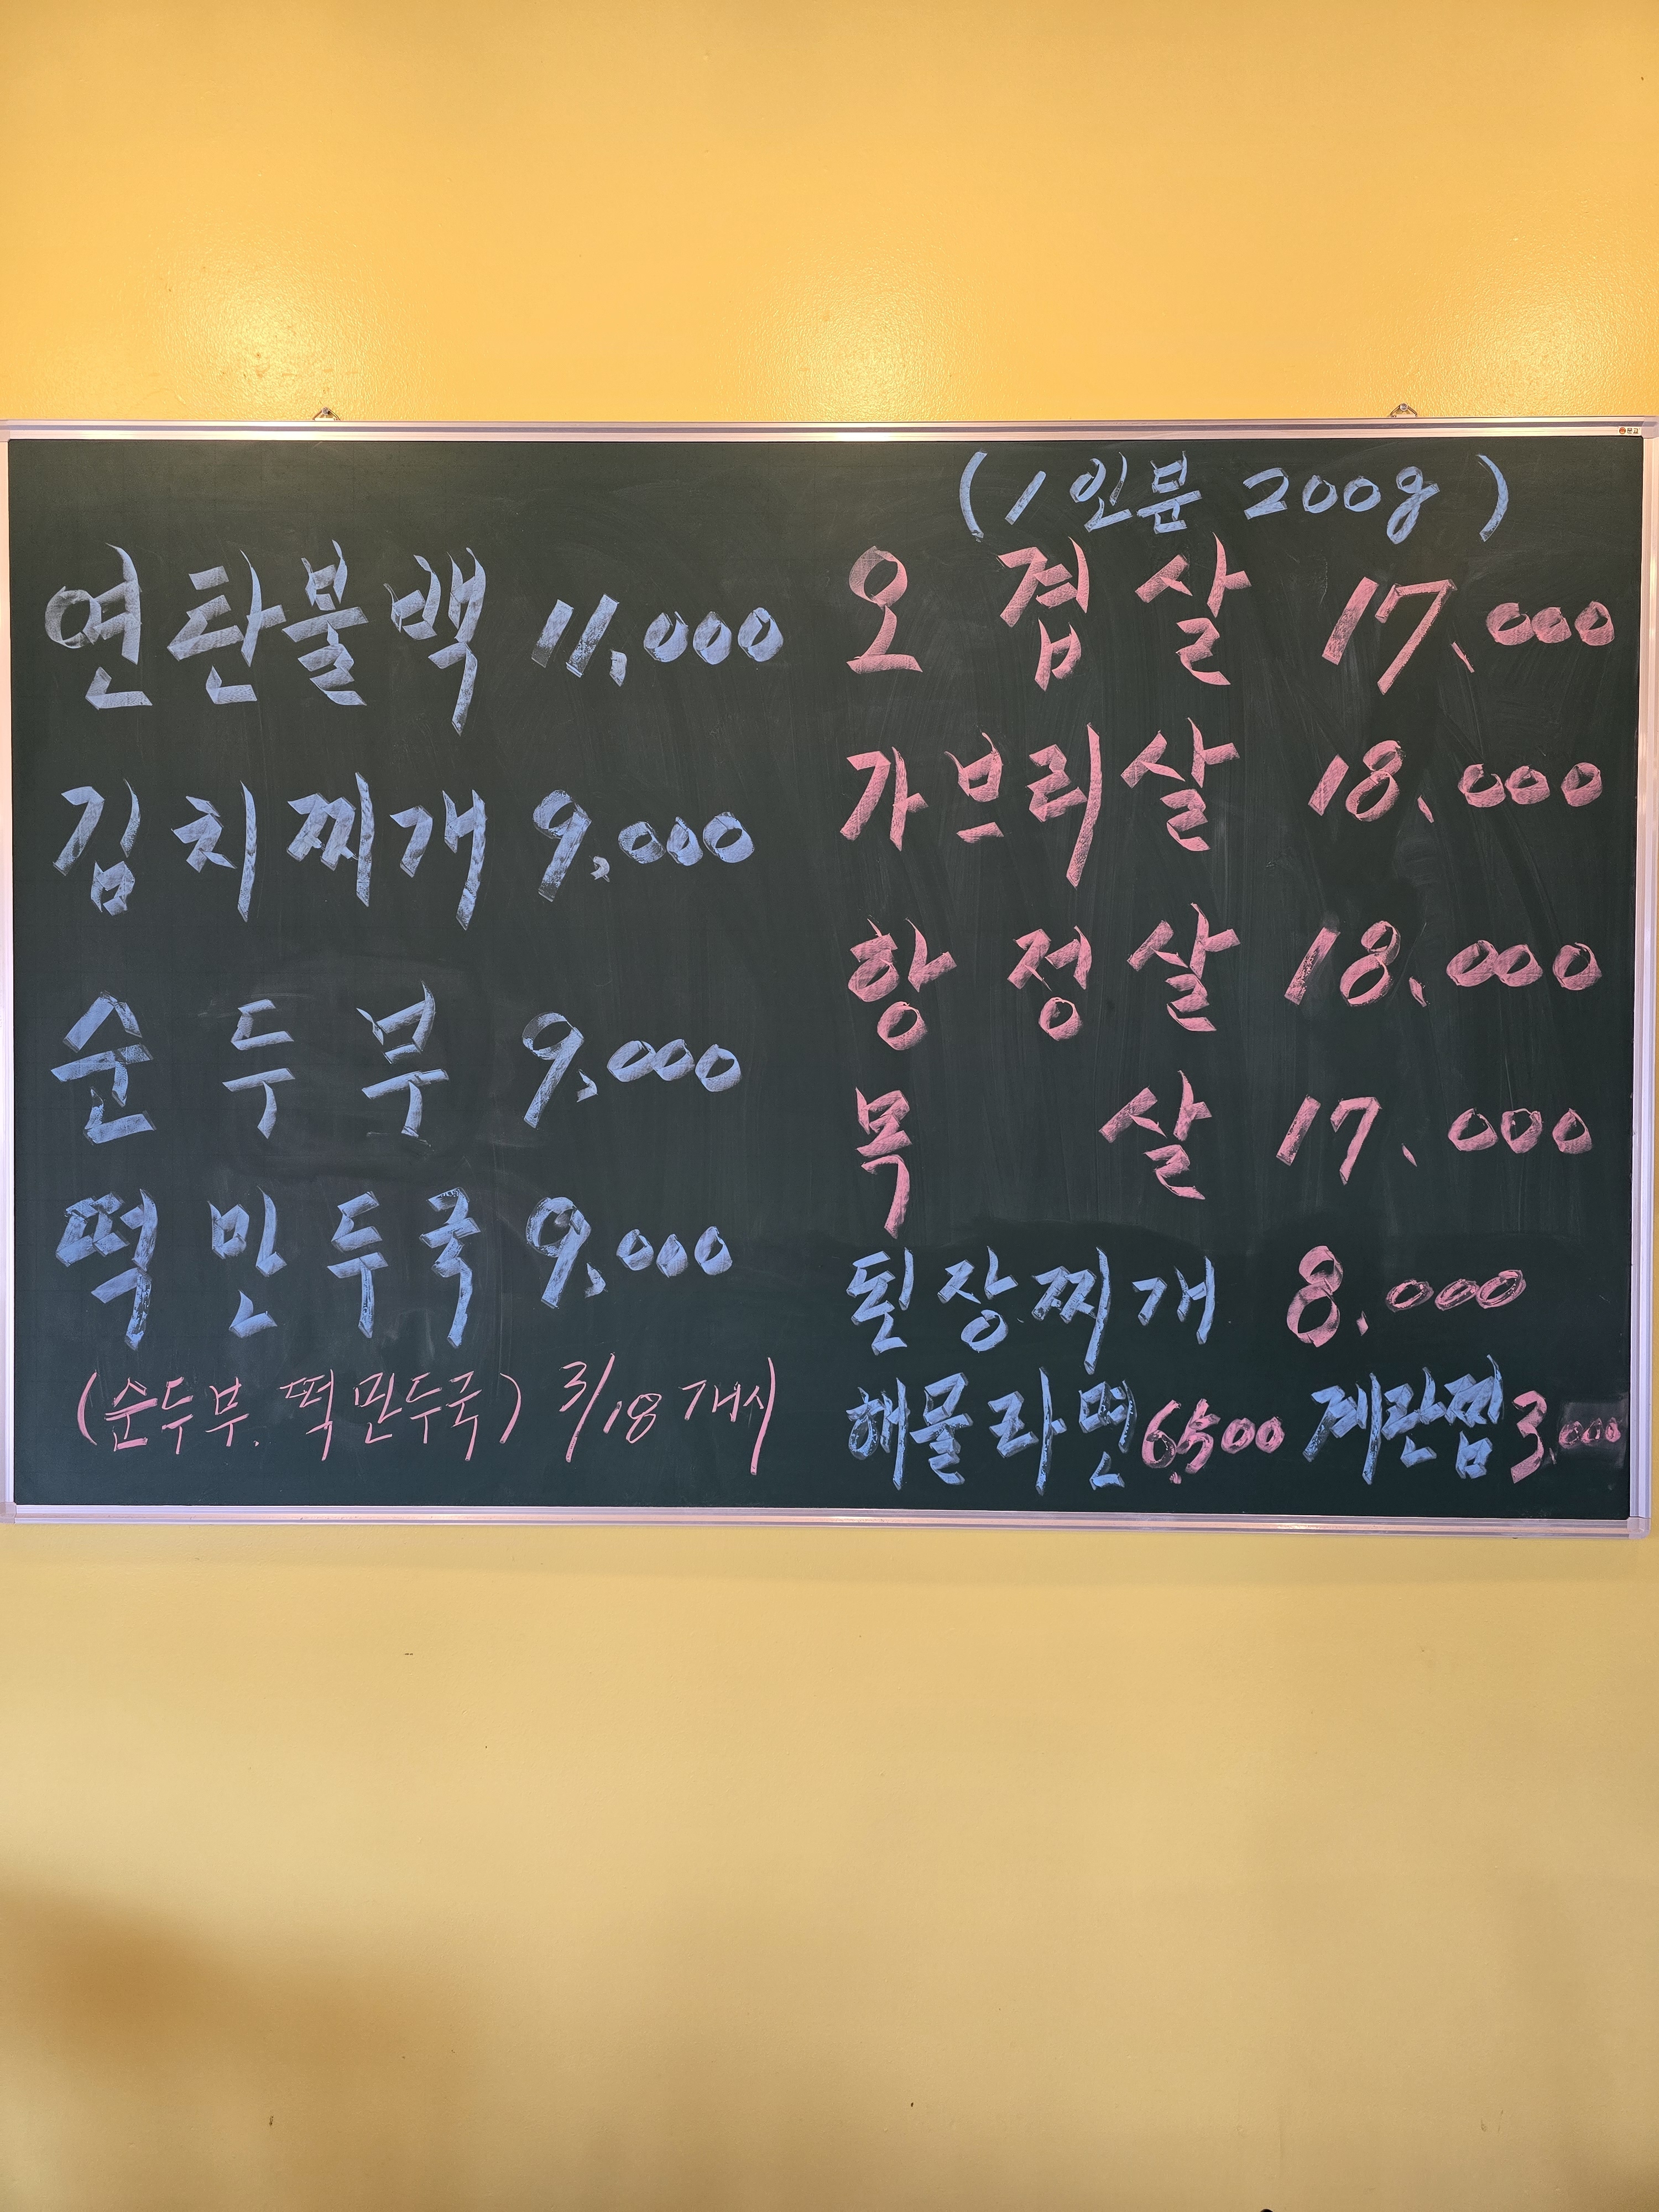 연탄불백 11,000
김치찌개 9,000
순두부 9,000
떡만두국 9,000
(순두부, 떡만두국) 3/18 개시
(1인분 200g)
오겹살 17,000
가브리살 18,000
항정살 18,000
목살 17,000
된장찌개 8,000
해물라면 6,500 계란찜 3,000